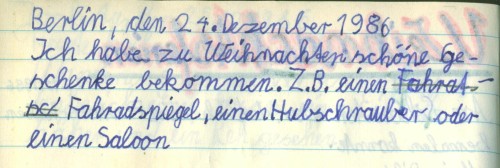 Berlin, den 24. Dezember 1986
Ich habe zu Weihnachten schöne Ge-
schenke bekommen. Z.B. einen Fahrat-
sci Fahradspiegel, einen Hubschrauber oder
einen Saloon